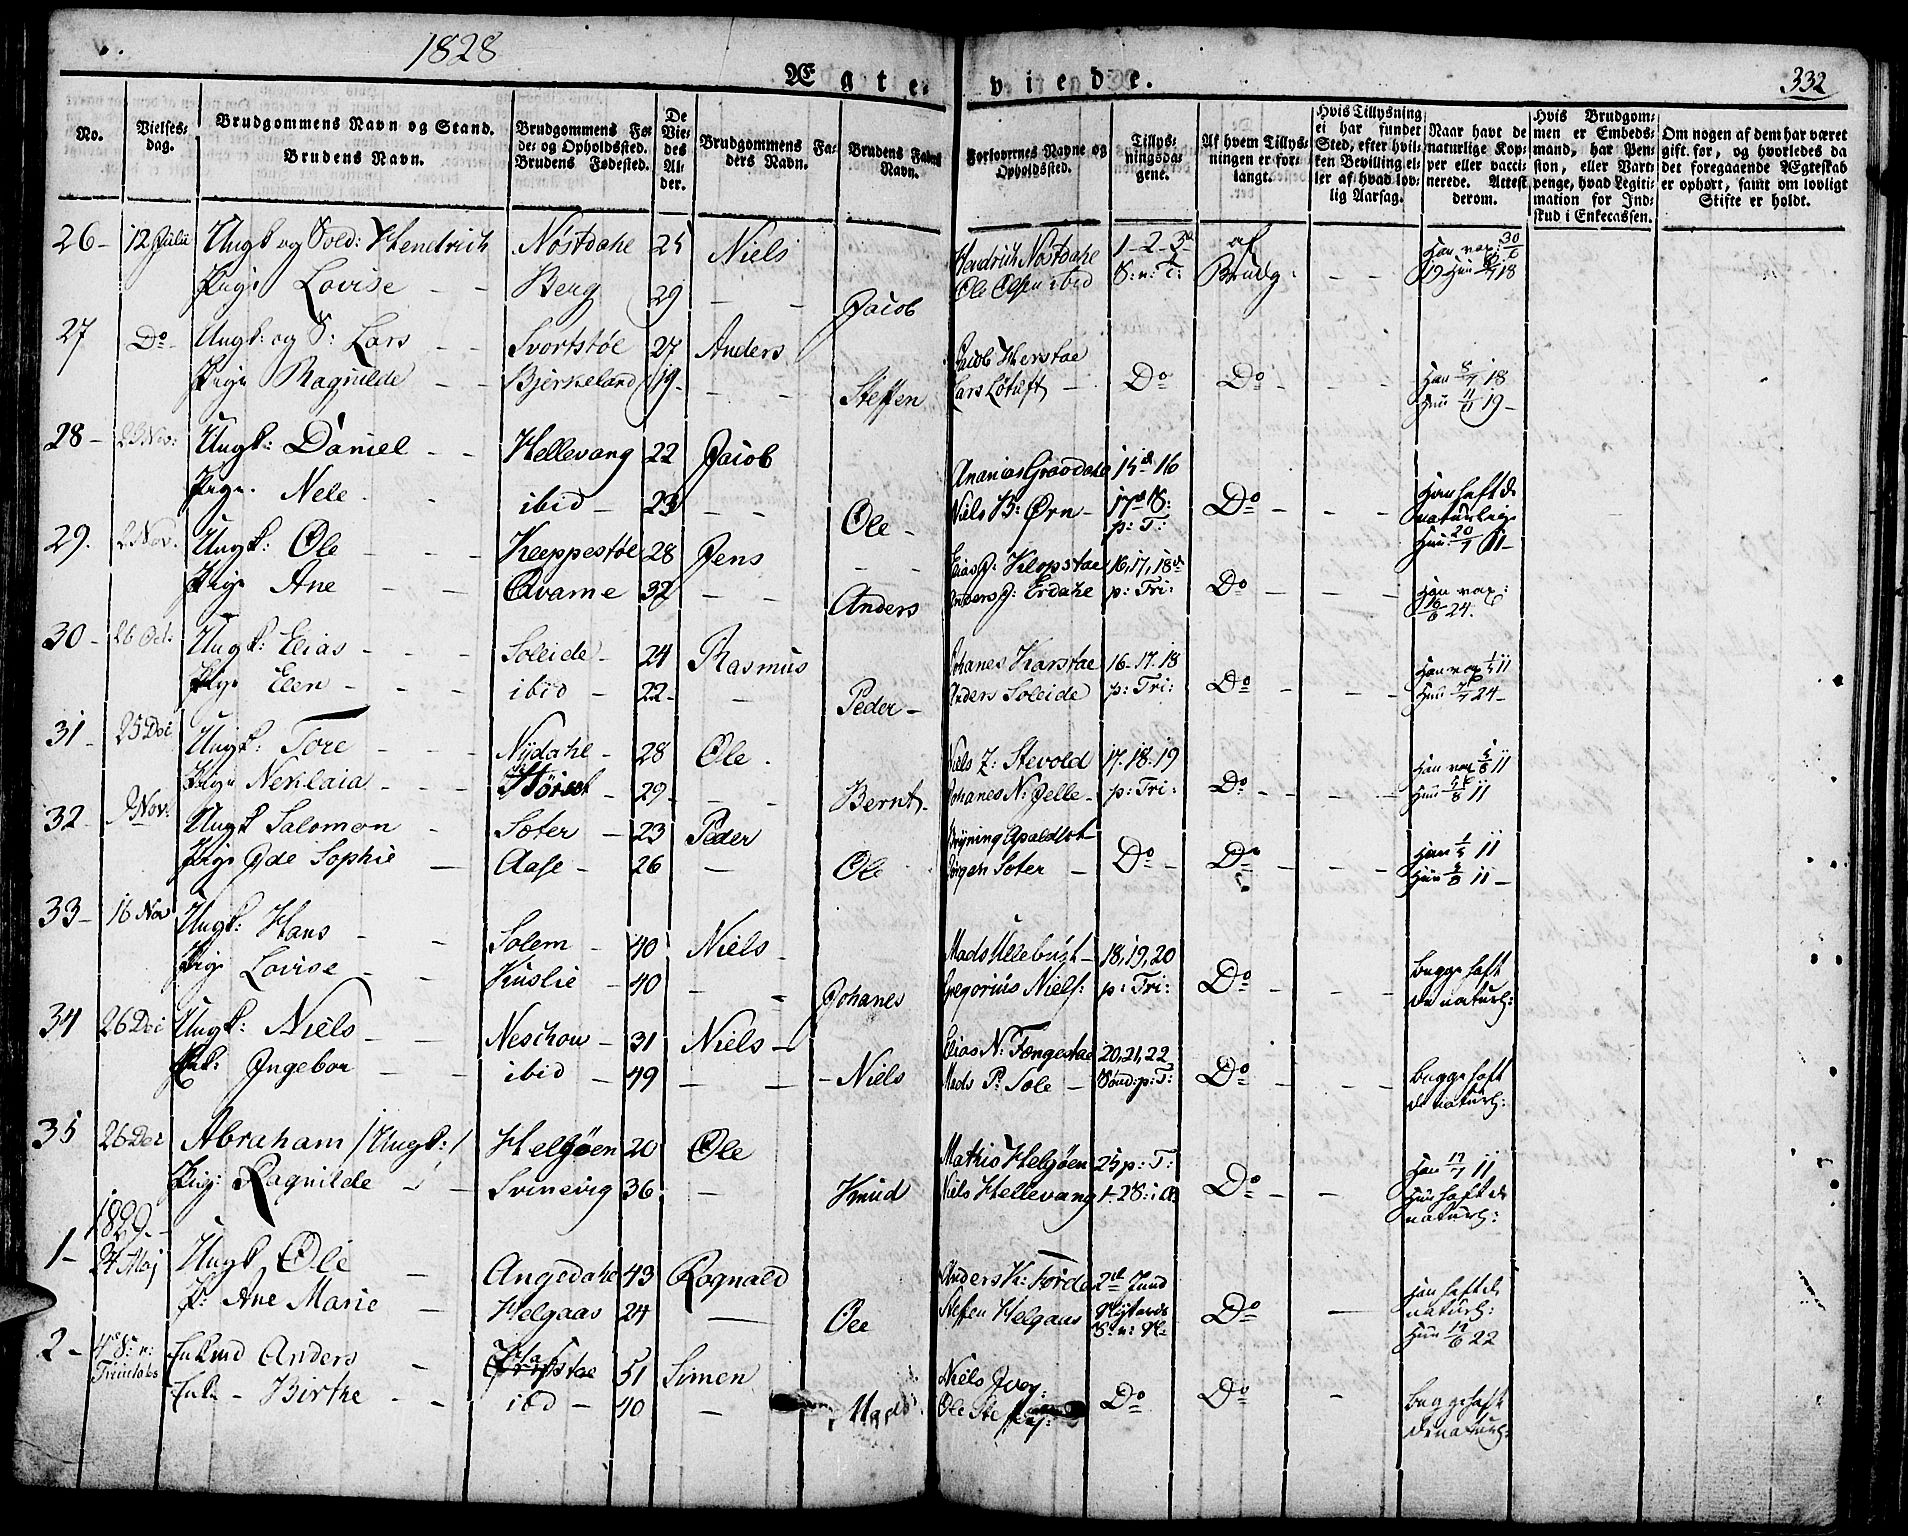 1828
332
Ægteviede.
No.
Vielses-dag.
Brudgommens Navn og Stand.
Brudens Navn.
Brudgommens Fø-
de- og Opholdssted.
Brudens Fødested.
De
Vie-
des
Al-
der.
Brudgommens Fa-
ders Navn.
Brudens Faders
Navn.
Forlovernes Navne og
Opholdssted.
Tillys-
ningsda-
gene.
Af hvem Tillys-
ningen er for-
langt.
Hvis Tillysning
ei har fundet
Sted, efter hvil-
ken Bevilling el-
ler af hvad lov-
lig Aarsag.
Naar havt de
naturlige Kop-
per eller vacci-
nerede. Attest
derom.
Hvis Brudgom-
men er Embeds-
mand, har Pen-
sion, eller Vart-
penge, hvad Legiti-
mation for Ind-
skud i Enkecassen.
Om nogen af dem har været
gift før, og hvorledes da
det foregaaende Ægteskab
er ophørt, samt om lovligt
Skifte er holdt.
26 - 12 Julii Ungk og Sold: Hendrich Nøstdahl 25 Niels Hendrich Nøstdahl 1 - 2 - 3d af Han vax: 30/6
Pige Lovise - - Berg 29 - - Jacob Ole Olsen ibid S: n: T: Brudg: - - 19 Hun 18
27 Do - Ungk: og S: Lars - - Svortstøl 27 Anders Jacob Herstae
Pige Ragnilde - - Bjerkeland 19 - - - Steffen Lars Løtuft - Do Do - - - Han 8/7 18
Hun 19 -
28 - 23 Nov: Ungk: Daniel - - Hellevang 22 Jacob Ananias Grovdahl 15d 16
Pige Nele - - ibid - 23 - - Ole - Niels H: Ørn - 17d S: p: T: Do - - - Han haft de naturlige
Hun 20/7 11 -
29. 2 Nov. Ungk: Ole - - - Kleppestøl 28 Jens - - Elias J: Klopstae 16, 17, 18de
Pige Ane - - Qvame 32 - - Anders Anders J: Erdahl p: Tri: Do - - - Han vax: 16/6 24.
30 - 26 Oct: Ungk: Elias - - - Soleide - 24 Rasmus Johanes Karstae 16 - 17. 18 Han vax 11
Pige Elen - - - ibid - 22 - - Peder - Anders Soleide p: Tri: Do - - - Hun 24 -
31 - 25 Dec Ungk: Tore - - - Nydahl - 28 Ole . Niels Z: Stevold 17. 18. 19 Han vax 11
Pige Neklaia - - - 29 - - - Bernt - Johanes N: Jelle - p: Tri: Do - - - - Hun 11
32 - 9 Nov: Ungk Salomon - Soter - 23 Peder Bryning Apaldtot
Pige Ide Sophie - Aase - 26 - Ole Jørgen Soter - Do - Do - - - - Han 11
Hun 11 -
33 - 16 Nov Ungk: Hans - - Solem - 40 Niels - Mads Ullebust - 18, 19, 20
Pige Lovise - - Huslie - 40 - - Johanes Gregorius Niels: p: Tri: Do - - - begge haft
de naturl:
34 26 Dec Ungk: Niels - - Neschou - 31 Niels - Elias N: Fængestae 20, 21, 22
Enk: Ingebor - - ibid - 49 - - - Niels Mads P: Sole - Sønd: p: T: Do - - - begge haft
de naturl:
35 26 Dec Abraham /Ungk:/ Helgøen 20 Ole Mathis Helgøen 25 p: T: Han 17/7 11
Pig: Ragnilde - - Svinevig 36 - Knud Niels Hellevang 1 - 2 S: i A Do - - Hun haft de
naturl:
1829 -
1 - 24 Maj Ungk Ole - Angedahl 43 Rognald Anders K: Førde 2den Juud Han haft de
P: Ane Marie - Helgaas 24 - Ole Steffen Helgaas S: n: Do - naturl:
Hun 22
2 - 4de S: n: Enkmd Anders - 51 Simen Niels Iver:
Trinitatis Enke - Birthe - - ibd - 40 - Mads Ole Do Do - begge haft
de naturl: